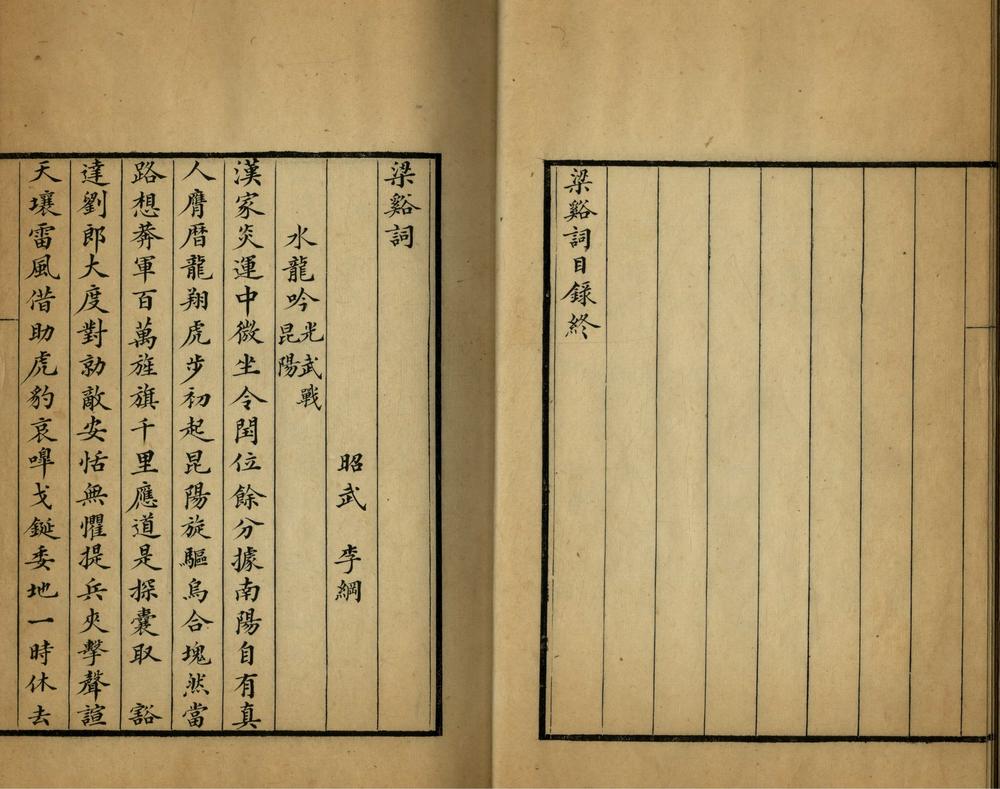 梁谿詞目錄終
梁谿詞
昭武 李綱
水龍吟 光武戰昆陽
漢家炎運中微坐令閏位餘分據南陽自有真
人膺曆龍翔虎步初起昆陽旋驅烏合塊然當
路想莽軍百萬旌旗千里應道是探囊取 豁
達劉郎大度對勍敵安恬無懼提兵夾擊聲諠
天壤雷風借助虎豹哀嘷戈鋋委地一時休去